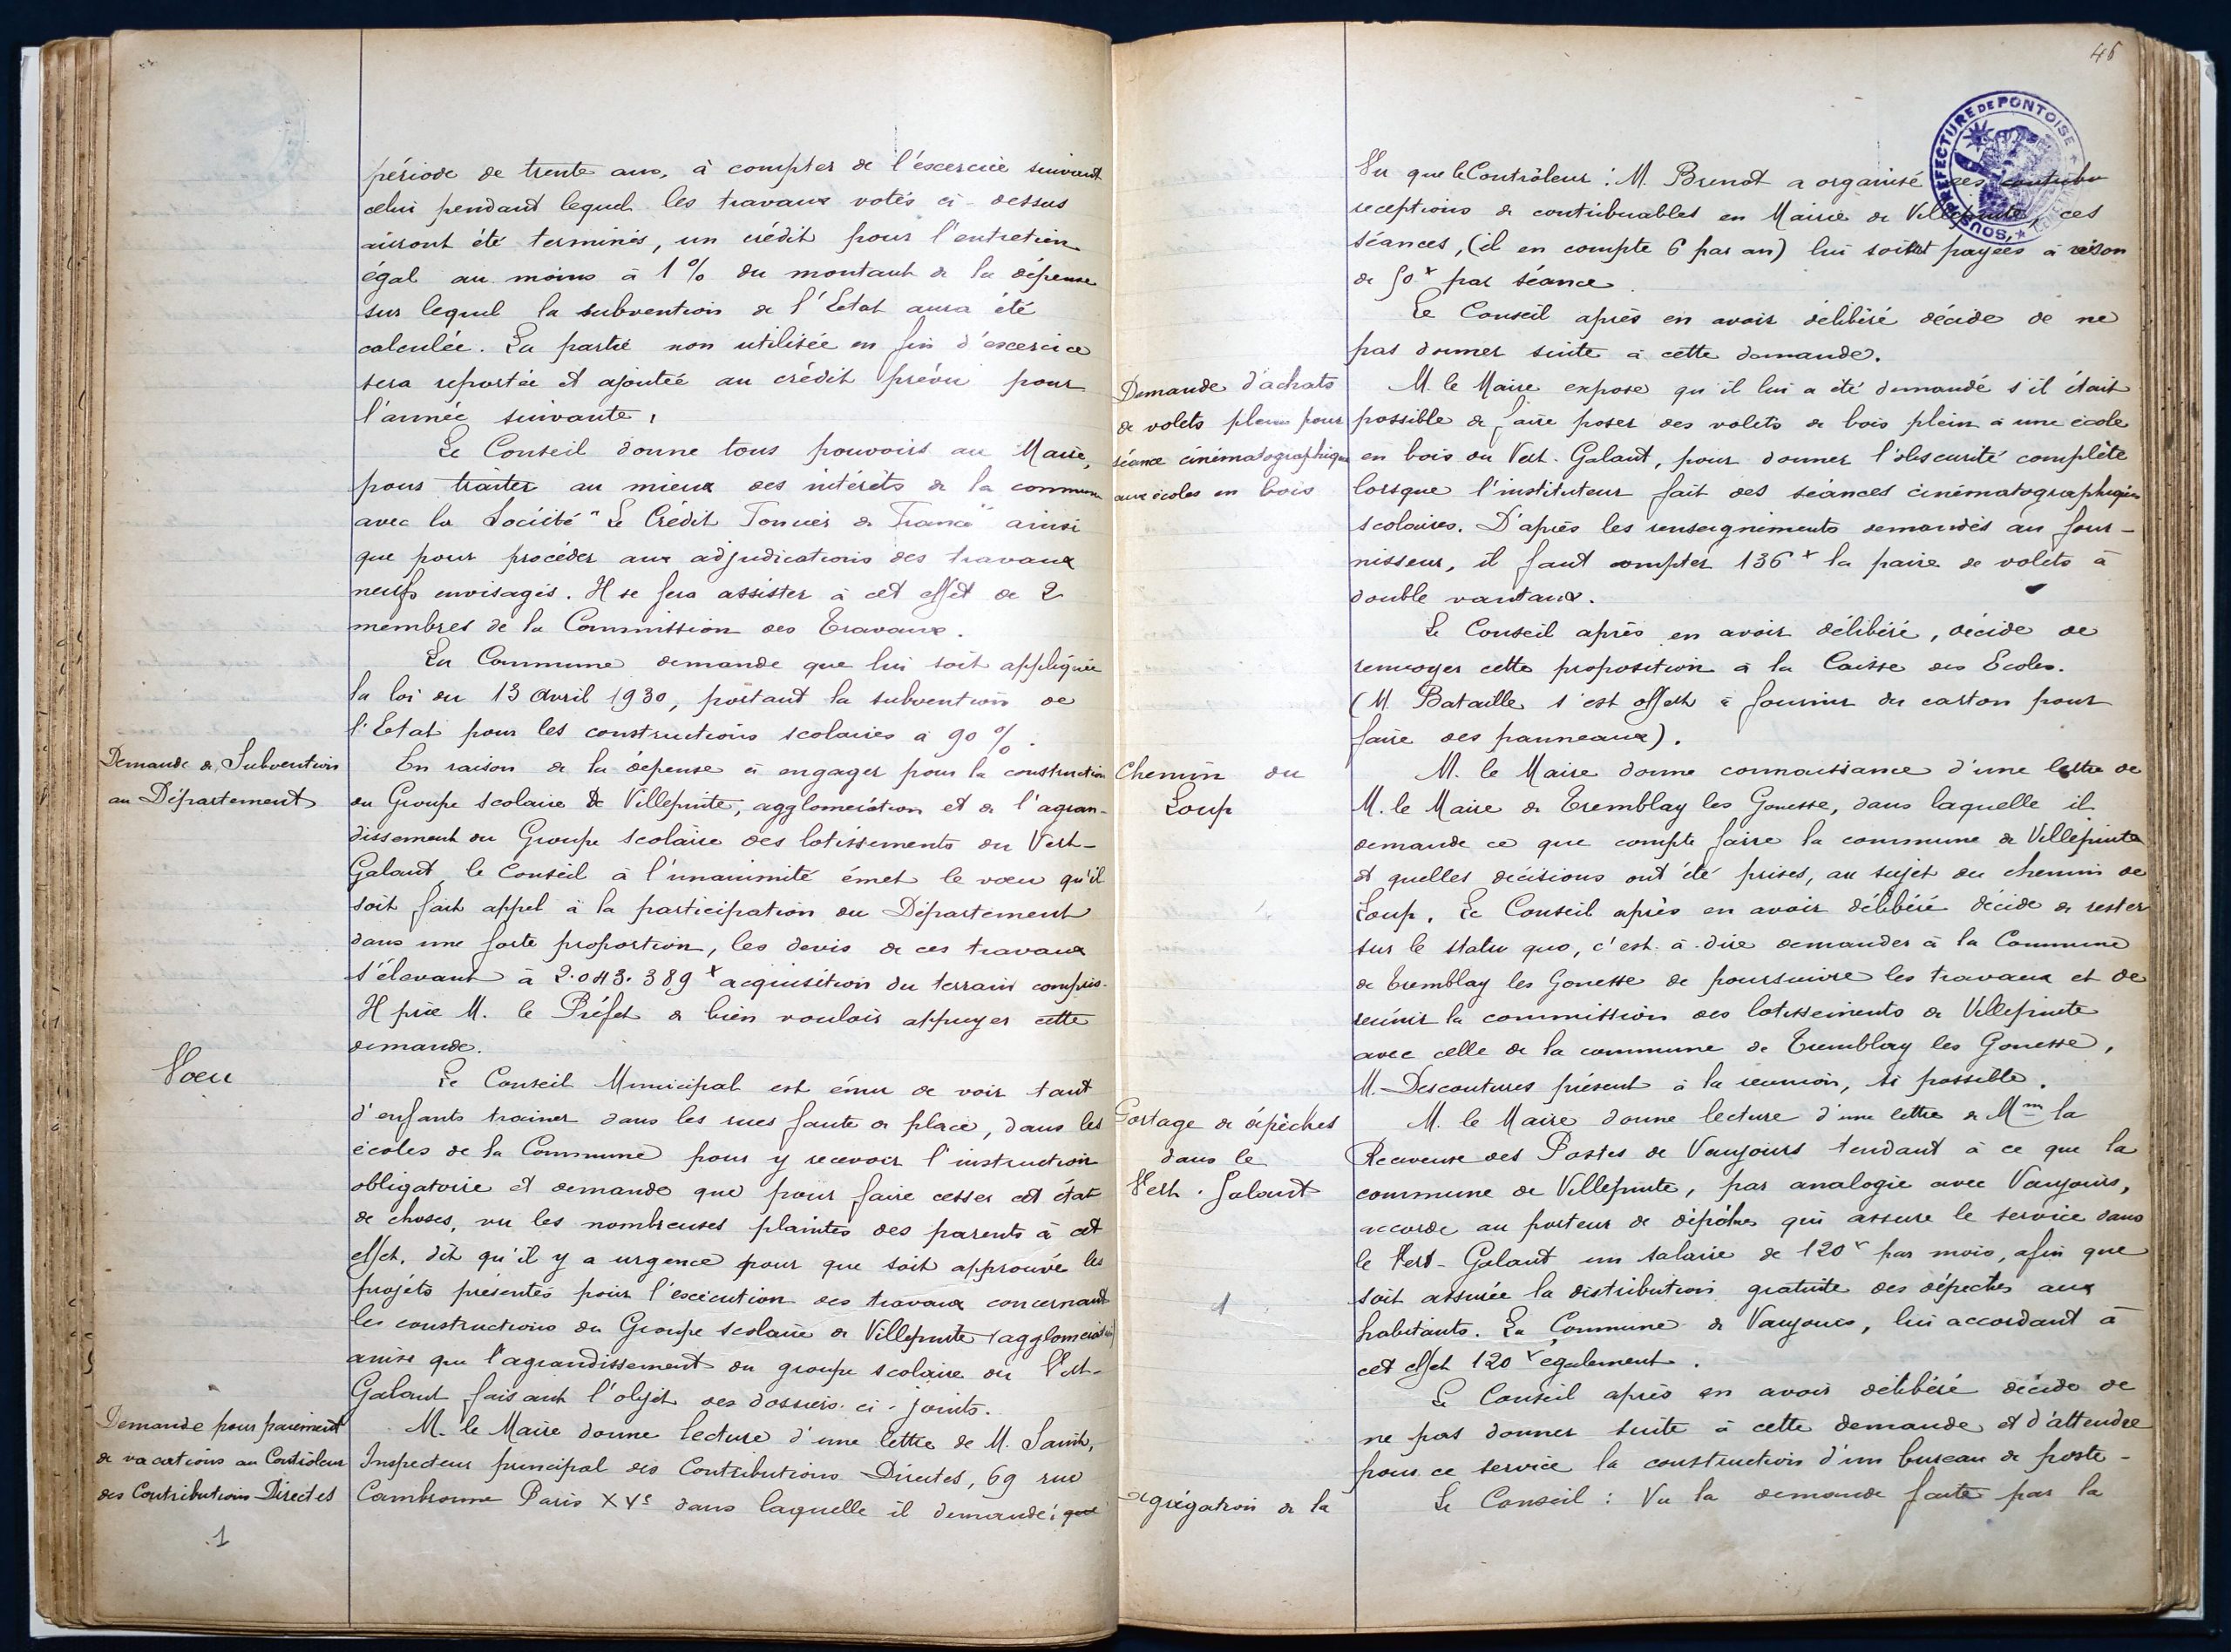 période de trente ans, à compter de l'éxcercice suivant
celui pendant lequel les travaux votés ci-dessus
auront été terminés, un crédit pour l'entretien
égal au moins à 1% du montant de la dépense
sur lequel la subvention de l'Etat aura été
calculée. La partie non utilisée en fin d'éxcercice
sera reportée et ajoutée au crédit prévu pour
l'année suivante,
Le Conseil donne tous pouvoirs au Maire,
pour traiter au mieux des intérêts de la commune
avec la Société "Le Crédit Foncier de France" ainsi
que pour procéder aux adjudications des travaux
neufs envisagés. Il se fera assister à cet effet de 2
membres de la Commission des Travaux.
La Commune demande que lui soit appliquée
la loi du 13 avril 1930, portant la subvention de
l'Etat pour les constructions scolaires à 90%.
Demande de Subvention
au Département
En raison de la dépense à engager pour la construction
du Groupe scolaire de Villepinte, agglomération et de l'agran-
dissement du Groupe scolaire des lotissements du Vert-
Galant, le Conseil à l'unanimité émet le voeu qu'il
soit fait appel à la participation du Département
dans une forte proportion, les devis de ces travaux
s'élevant à 2.043.389 f acquisition du terrain compris.
Il prie M. le Préfet de bien vouloir appuyer cette
demande.
Voeu
Le Conseil Municipal est ému de voir tant
d'enfants trainer dans les rues faute de place, dans les
écoles de la Commune pour y recevoir l'instruction
obligatoire et demande que pour faire cesser cet état
de choses, vu les nombreuses plaintes des parents à cet
effet, dit qu'il y a urgence pour que soit approuvé les
projets présentés pour l'éxécution des travaux concernant
les constructions du Groupe scolaire de Villepinte (agglomération)
ainsi que l'agrandissement du groupe scolaire du Vert-
Galant faisant l'objet des dossiers ci-joints.
Demande pour paiement
de vacations au Contrôleur
des Contributions Directes
1
M. le Maire donne lecture d'une lettre de M. Saint,
Inspecteur principal des Contributions Directes, 69 rue
Cambronne Paris XVe dans laquelle il demande: que
SOUS-PREFECTURE DE PONTOISE
Vu que le Contrôleur: M. Brenot a organisé des contribu
receptions de contribuables en Mairie de Villepinte, ces
séances, (il en compte 6 par an) lui soient payées à raison
de 50 f par séance.
Le Conseil après en avoir délibéré décide de ne
pas donner suite à cette demande.
Demande d'achats
de volets pleins pour
séance cinématographique
aux écoles en bois
M. le Maire expose qu'il lui a été demandé s'il était
possible de faire poser des volets de bois plein à une école
en bois du Vert-Galant, pour donner l'obscurité complète
lorsque l'instituteur fait des séances cinématographiques
scolaires. D'après les renseignements demandés au four-
nisseur, il faut compter 136 f la paire de volets à
double vantaux.
Le Conseil après en avoir délibéré, décide de
renvoyer cette proposition à la Caisse des Ecoles.
(M. Bataille s'est offert à fournir du carton pour
faire des panneaux).
Chemin du
Loup
M. le Maire donne connaissance d'une lettre de
M. le Maire de Tremblay les Gonesse, dans laquelle il
demande ce que compte faire la commune de Villepinte
et quelles décisions ont été prises, au sujet du chemin de
Loup. Le Conseil après en avoir délibéré décide de rester
sur le statu quo, c'est-à-dire demander à la Commune
de Tremblay les Gonesse de poursuivre les travaux et de
réunir la commission des lotissements de Villepinte
avec celle de la commune de Tremblay les Gonesse,
M. Descoutures présent à la reunion, si possible.
Portage de dépêches
dans le
Vert-Galant
1
M. le Maire donne lecture d'une lettre de Mme la
Receveuse des Postes de Vaujours tendant à ce que la
commune de Villepinte, par analogie avec Vaujours,
accorde au porteur de dépêches qui assure le service dans
le Vert-Galant un salaire de 120 f par mois, afin que
soit assurée la distribution gratuite des dépêches aux
habitants. La Commune de Vaujours, lui accordant à
cet effet 120 f également.
Le Conseil après en avoir délibéré décide de
ne pas donner suite à cette demande et d'attendre
pour ce service la construction d'un bureau de poste-
Agrégation de la
Le Conseil: Vu la demande faite par la